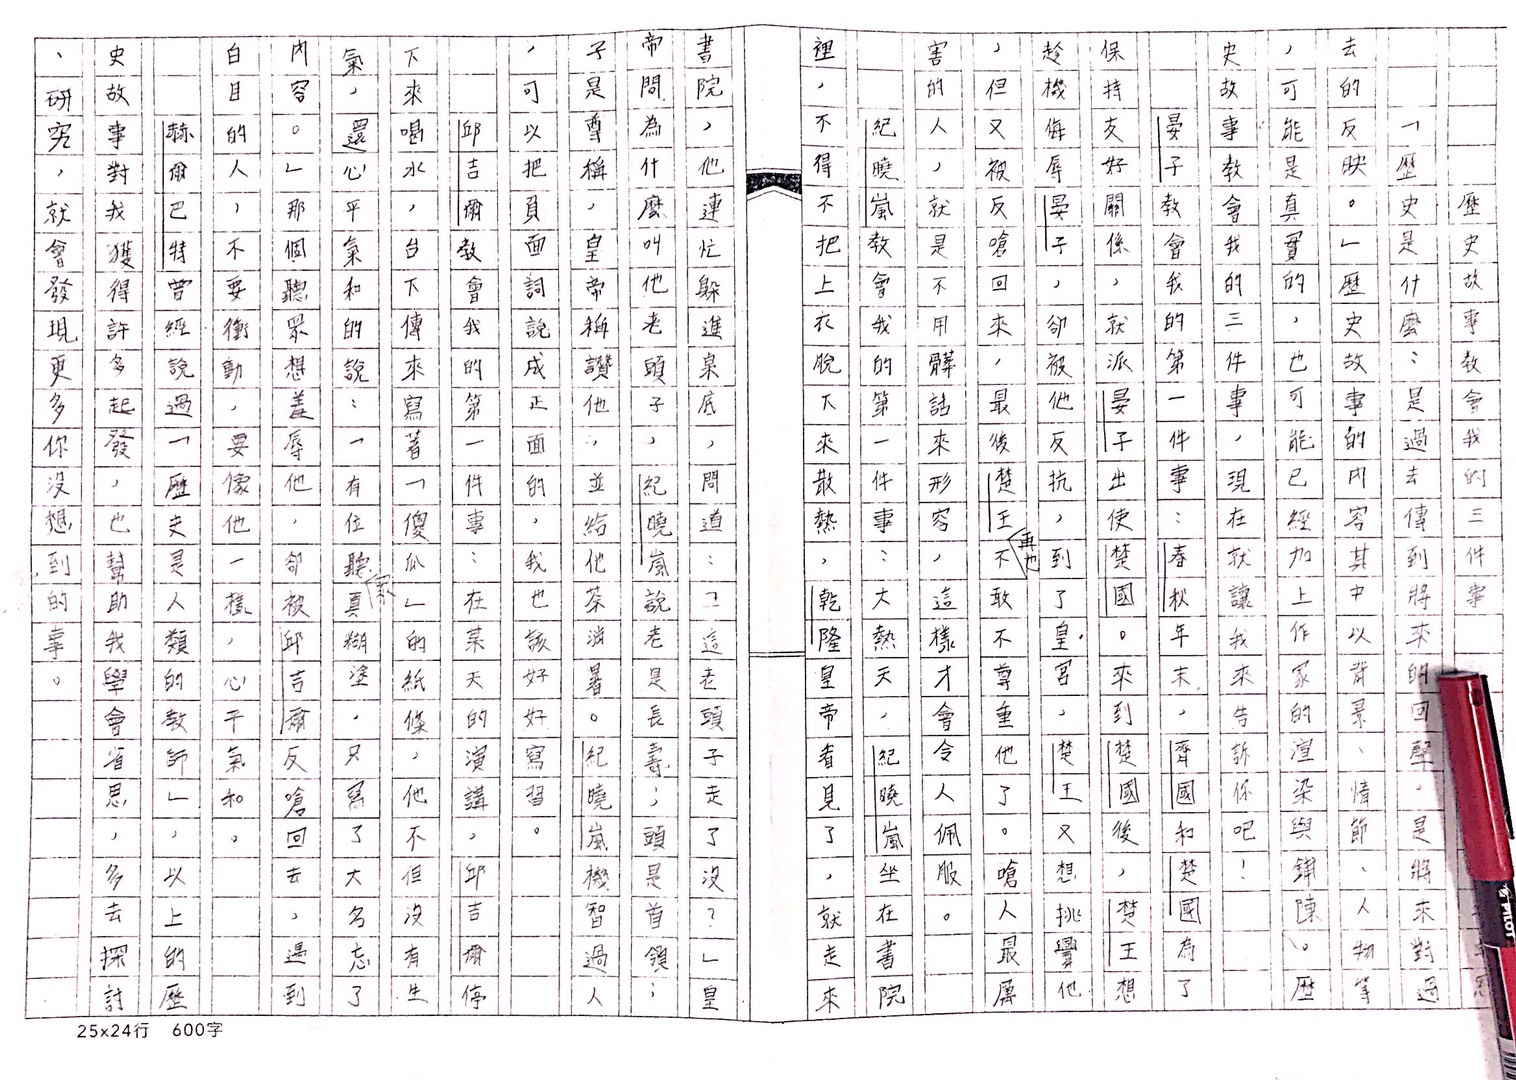 歷史故事教會我的三件事
「歷史是什麼：是過去傳到將來的回聲，是將來對過
去的反映。」歷史故事的內容其中以背景、情節、人物等
，可能是真實的，也可能已經加上作家的渲染與鋪陳。歷
史故事教會我的三件事，現在就讓我來告訴你吧！
晏子教會我的第一件事：春秋年末，齊國和楚國為了
保持友好關係，就派晏子出使楚國。來到楚國後，楚王想
趁機侮辱晏子，卻被他反抗，到了皇宮，楚王又想挑釁他
，但又被反嗆回來，最後楚王再也不敢不尊重他了。嗆人最厲
害的人，就是不用髒話來形容，這樣才會令人佩服。
紀曉嵐教會我的第一件事：大熱天，紀曉嵐坐在書院
裡，不得不把上衣脫下來散熱，乾隆皇帝看見了，就走來
書院，他連忙躲進桌底，問道：「這老頭子走了沒？」皇
帝問為什麼叫他老頭子，紀曉嵐說老是長壽；頭是首領；
子是尊稱，皇帝稱讚他，並給他茶消暑。紀曉嵐機智過人
，可以把負面詞說成正面的，我也該好好寫習。
邱吉爾教會我的第一件事：在某天的演講，邱吉爾停
下來喝水，台下傳來寫著「傻瓜」的紙條，他不但沒有生
氣，還心平氣和的說：「有位聽眾真糊塗，只寫了大名忘了
內容。」那個聽眾想羞辱他，卻被邱吉爾反嗆回去，遇到
白目的人，不要衝動，要像他一樣，心平氣和。
赫爾巴特曾經說過「歷史是人類的教師」，以上的歷
史故事對我獲得許多起發，也幫助我學會省思，多去探討
、研究，就會發現更多你沒想到的事。
25x24行 600字
PILOT